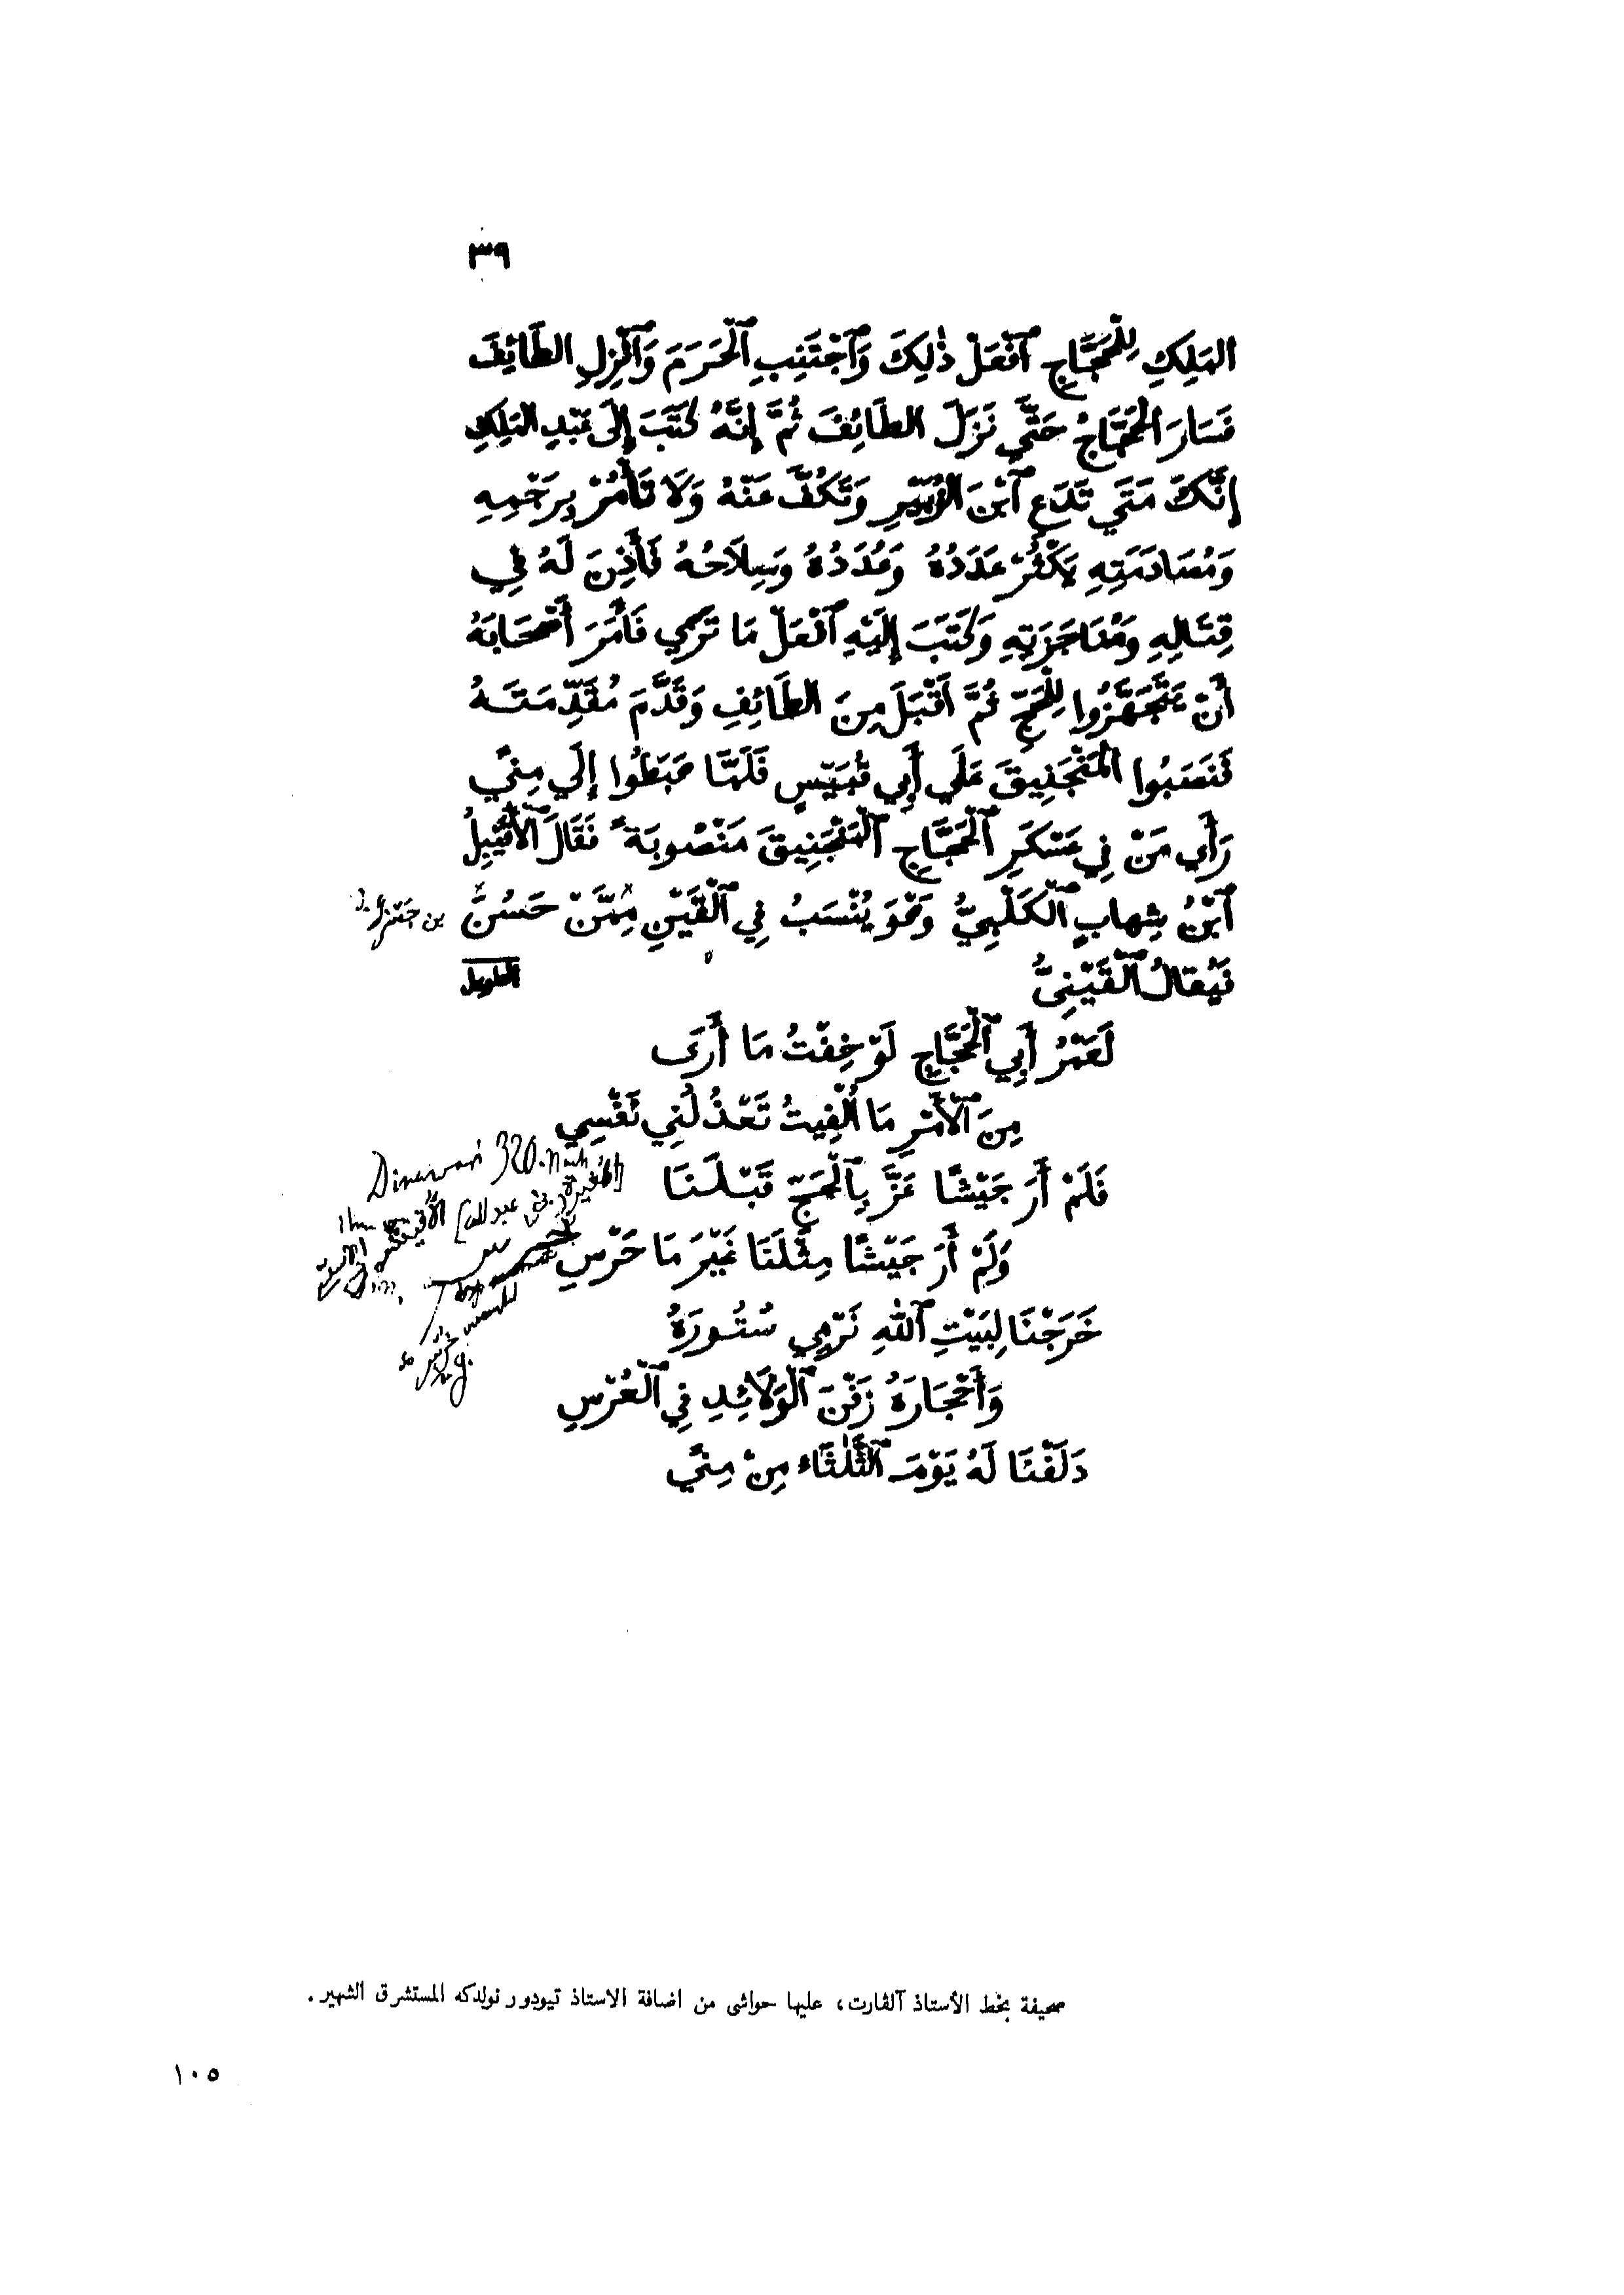 ٣٩
المَلِكِ لِلْحَجَّاجِ ٱفْعَلْ ذٰلِكَ وَٱجْتَنِبِ ٱلْحَرَمَ وَٱنْزِلِ الطَّائِفَ
فَسَارَ الْحَجَّاجُ حَتَّي نَزَلَ الطَّائِفَ ثُمَّ إِنَّهُ كَتَبَ إِلَى عَبْدِ المَلِكِ
إِنَّكَ مَتَي تَدَعِ ٱبْنَ الزُّبَيْرِ وَتَكُفَّ عَنْهُ وَلَا تَأْمُرْ بِرَجْمِهِ
وَمُصَادَمَتِهِ يَكْثُرْ عَدَدُهُ وَعُدَدُهُ وَسِلَاحُهُ فَأَذِنَ لَهُ فِي
قِتَالِهِ وَمُنَاجَزَتِهِ وَكَتَبَ إِلَيْهِ ٱفْعَلْ مَا تَرَي فَأَمَرَ أَصْحَابَهُ
أَنْ يَتَجَهَّزُوا لِلْحَجِّ ثُمَّ أَقْبَلَ مِنَ الطَّائِفِ وَقَدَّمَ مُقَدِّمَتَهُ
فَنَصَبُوا الْمَنْجَنِيقَ عَلَي أَبِي قُبَيْسٍ فَلَمَّا هَبَطُوا إِلَي مِنًي
رَأَي مَنْ فِي عَسْكَرِ ٱلْحَجَّاجِ ٱلْمَنْجَنِيقَ مَنْصُوبَةً فَقَالَ ٱلْأُقَيْبِلُ
ٱبْنُ شِهابٍ ٱلْكَلْبِيُّ وَهْوَ يُنْسَبُ فِي ٱلْقَيْنِ مِمَّنْ حَسُنَ
فَيُقالُ ٱلْقَيْنِىُّ الطويل
لَعَمْرُ أَبِي ٱلْحَجَّاجِ لَوْ خِفْتُ مَا أَرَى
مِنَ ٱلْأَمْرِ مَا أُلْفِيتُ تَعْذُلُنِي نَفْسِي
Dinawari 320.
فَلَمْ أَرَ جَيْشًا عَزَّ بِٱلْحَجِّ قَبْلَنَا
بن عبد الله
وَلَمْ أَرَ جَيْشًا مِثْلَنَا غَيْرَ مَا خَرْسِ
خَرَجْنَا لِبَيْتِ ٱللّٰهِ نَرْمِي سُتُورَهُ
وَأَحْجَارَهُ زَفْنَ ٱلْوَلَائِدِ فِي ٱلْعُرْسِ
دَلَفْنَا لَهُ يَوْمَ ٱلثَّلٰثَاءِ مِنْ مِنًي
صحيفة بخط الأستاذ آلفارت، عليها حواشى من اضافة الاستاذ تيودور نولدكه المستشرق الشهير.
١٠٥